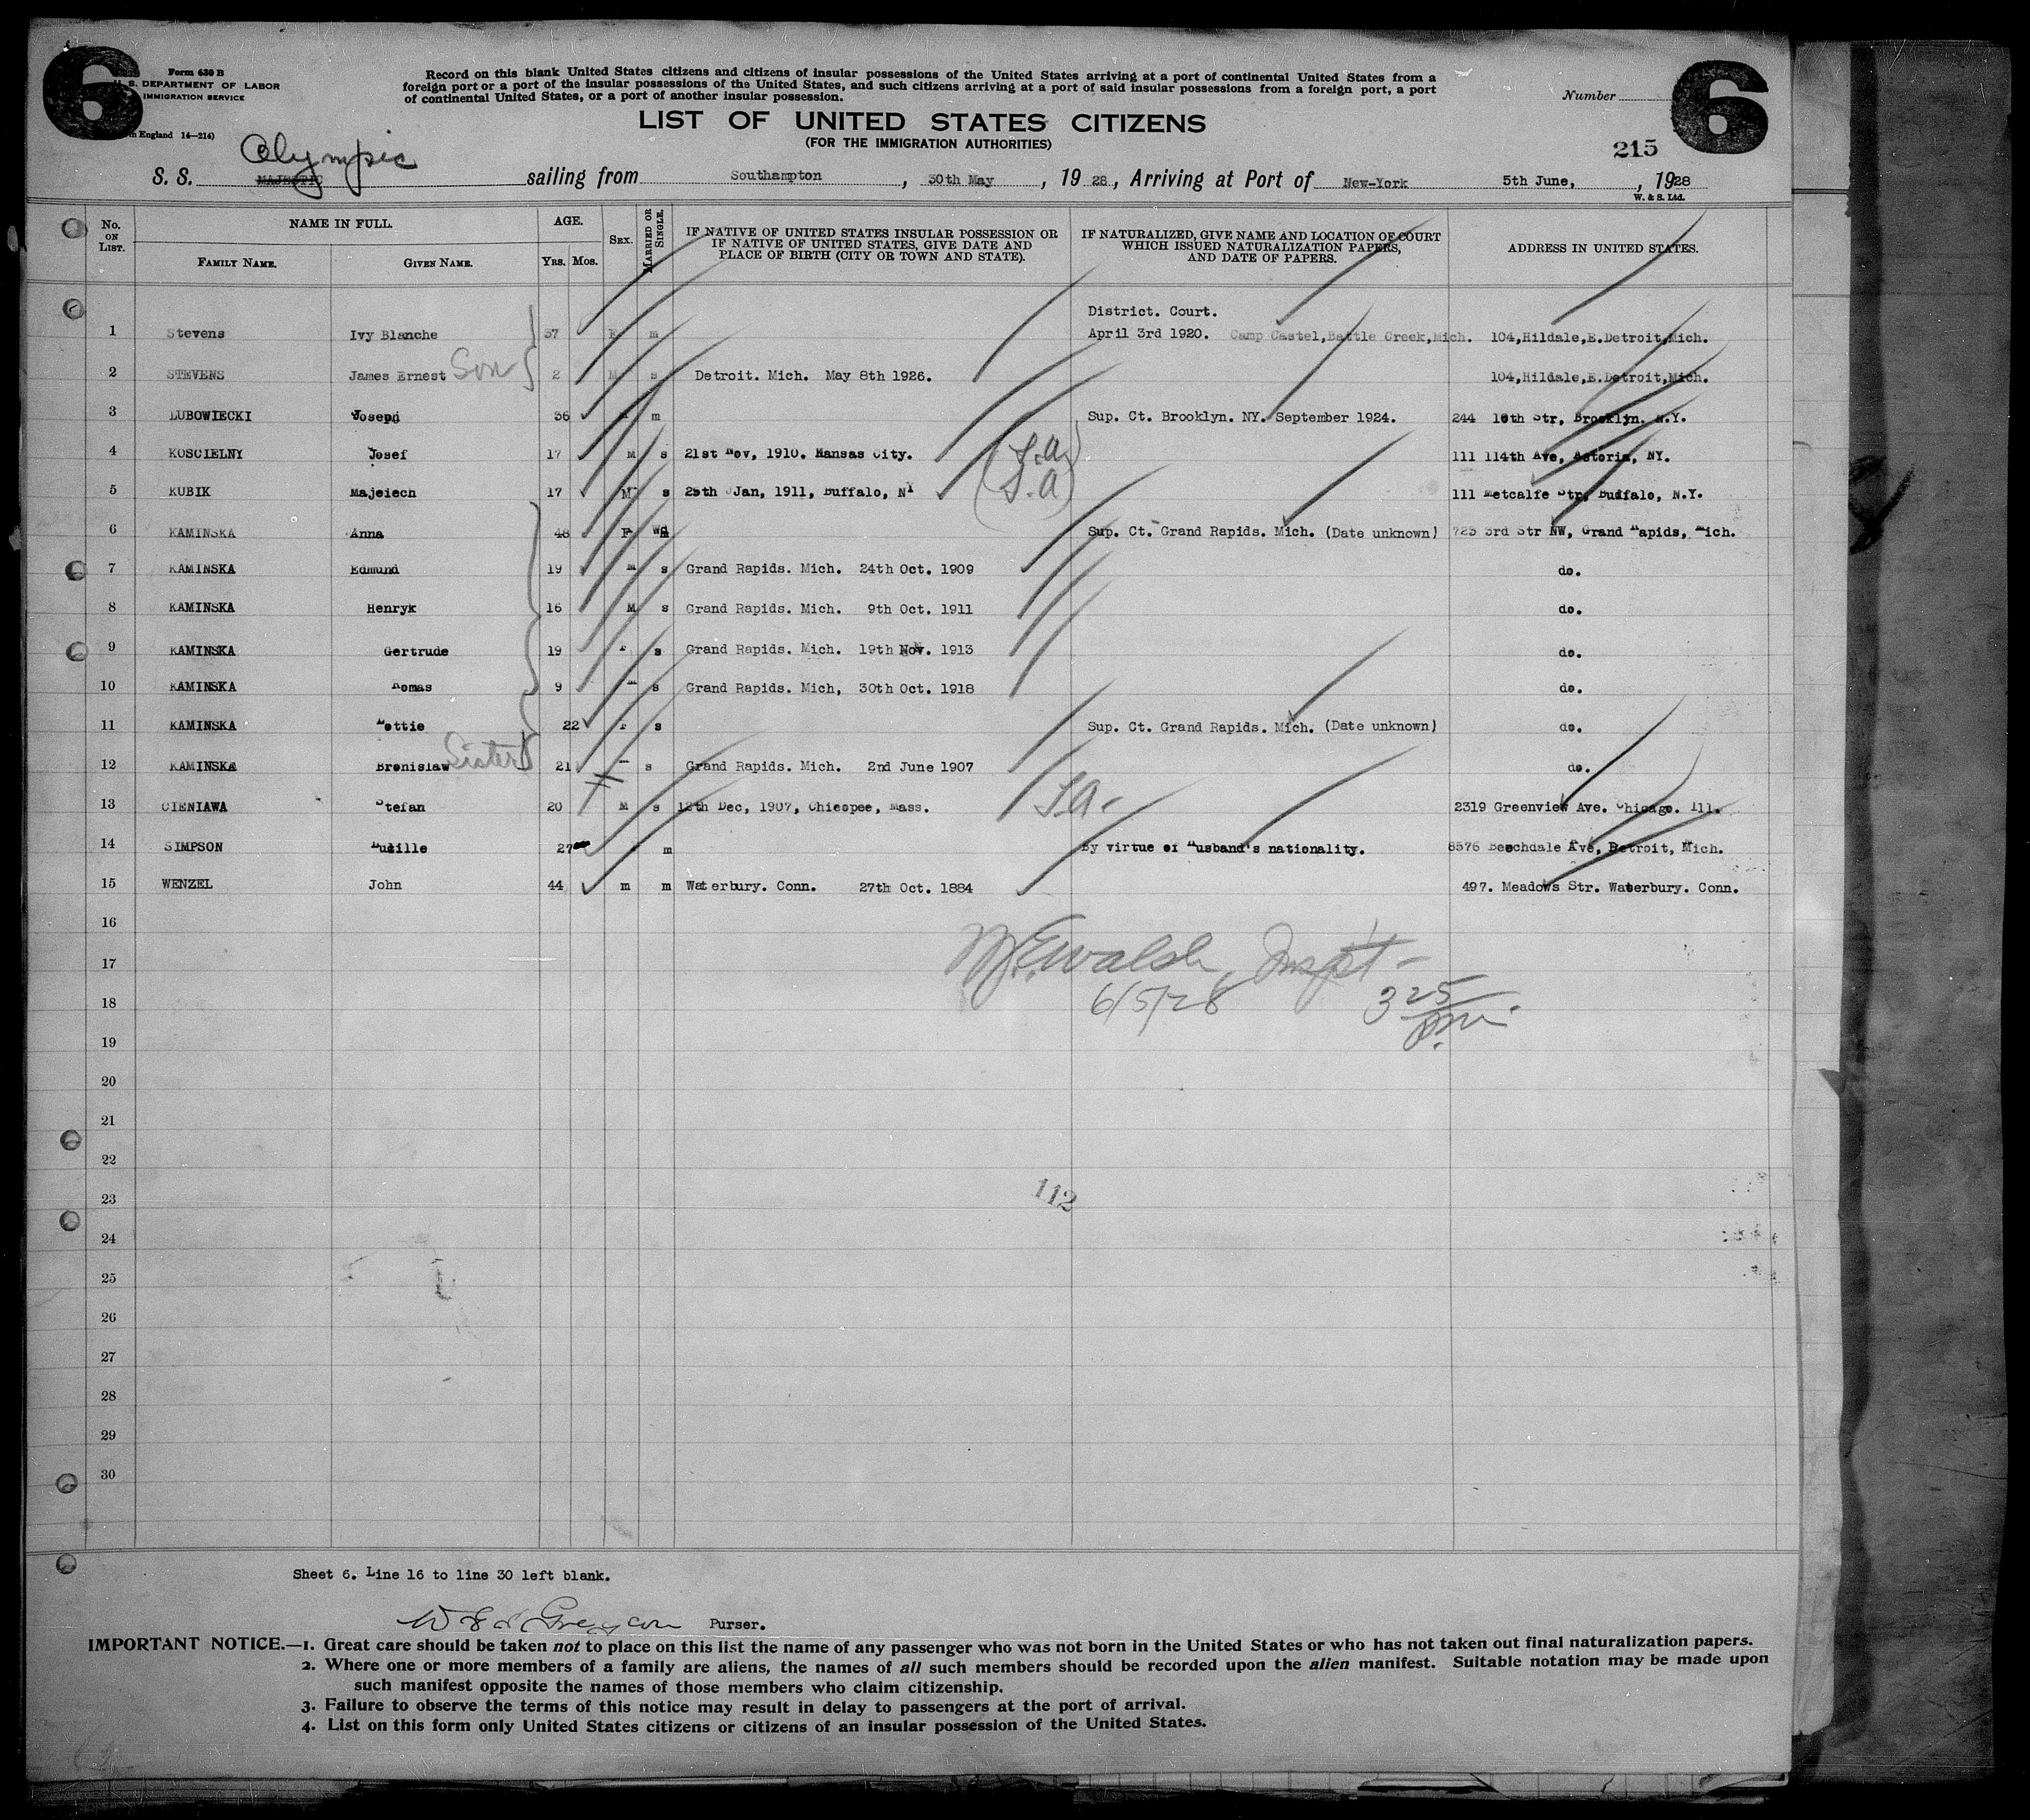 6
6
Form 630 B
S. DEPARTMENT OF LABOR
IMMIGRATION SERVICE
in England 14—214)
Record on this blank United States citizens and citizens of insular possessions of the United States arriving at a port of continental United States from a
foreign port or a port of the insular possessions of the United States, and such citizens arriving at a port of said insular possessions from a foreign port, a port
of continental United States, or a port of another insular possession.
Number
LIST OF UNITED STATES CITIZENS
(FOR THE IMMIGRATION AUTHORITIES)
215
Olympic
S. S. MAJESTIC sailing from Southampton, 30th May, 1928, Arriving at Port of New-York 5th June, , 1928
W. & S. Ltd.
No. ON LIST. NAME IN FULL. AGE. SEX. MARRIED OR SINGLE. IF NATIVE OF UNITED STATES INSULAR POSSESSION OR IF NATIVE OF UNITED STATES, GIVE DATE AND PLACE OF BIRTH (CITY OR TOWN AND STATE). IF NATURALIZED, GIVE NAME AND LOCATION OF COURT WHICH ISSUED NATURALIZATION PAPERS, AND DATE OF PAPERS. ADDRESS IN UNITED STATES.
FAMILY NAME. GIVEN NAME. YRS. MOS.
District. Court.
1 Stevens Ivy Blanche 37 F m April 3rd 1920. Camp Castel,Battle Creek,Mich. 104,Hildale,E.Detroit,Mich.
2 STEVENS James Ernest Son 2 M s Detroit. Mich. May 8th 1926. 104,Hildale,E.Detroit,Mich.
3 LUBOWIECKI Joseph 36 m Sup. Ct. Brooklyn. NY. September 1924. 244 16th Str, Brooklyn. N.Y.
4 KOSCIELNY Josef 17 M s 21st Nov, 1910. Kansas City. (S.A) 111 114th Ave, Astoria, NY.
5 KUBIK Majciech 17 M s 25th Jan, 1911, Buffalo, NY (S.A) 111 Metcalfe Str, Buffalo, N.Y.
6 KAMINSKA Anna 48 F Wd Sup. Ct. Grand Rapids. Mich. (Date unknown) 725 3rd Str NW, Grand Rapids, Mich.
7 KAMINSKA Edmund 19 M s Grand Rapids. Mich. 24th Oct. 1909 do.
8 KAMINSKA Henryk 16 M s Grand Rapids. Mich. 9th Oct. 1911 do.
9 KAMINSKA Gertrude 19 F s Grand Rapids. Mich. 19th Nov. 1913 do.
10 KAMINSKA Romas 9 M s Grand Rapids. Mich, 30th Oct. 1918 do.
11 KAMINSKA 22 F s Sup. Ct. Grand Rapids. Mich. (Date unknown) do.
12 KAMINSKA Bronislaw Sister 21 s Grand Rapids. Mich. 2nd June 1907 do.
13 CIENIAWA Stefan 20 M s 12th Dec, 1907, Chicopee, Mass. S.A- 2319 Greenview Ave. Chicago. Ill.
14 SIMPSON 27 m By virtue of Husband's nationality. 8576 Beechdale Ave, Detroit, Mich.
15 WENZEL John 44 m m Waterbury. Conn. 27th Oct. 1884 497. Meadows Str. Waterbury. Conn.
16
17 Walsh, Inspt-
18 6/5/28 3 25 pm.
19
20
21
22
23
112
24
25
26
27
28
29
30
Sheet 6. Line 16 to line 30 left blank.
Purser.
IMPORTANT NOTICE.—1. Great care should be taken not to place on this list the name of any passenger who was not born in the United States or who has not taken out final naturalization papers.
2. Where one or more members of a family are aliens, the names of all such members should be recorded upon the alien manifest. Suitable notation may be made upon
such manifest opposite the names of those members who claim citizenship.
3. Failure to observe the terms of this notice may result in delay to passengers at the port of arrival.
4. List on this form only United States citizens or citizens of an insular possession of the United States.